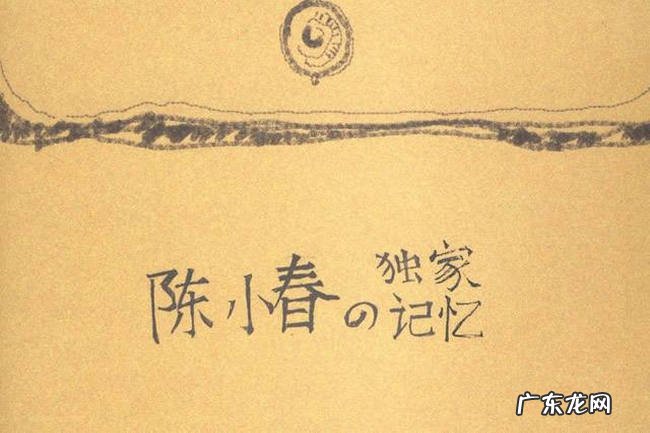 陈小春の独家
记忆
广东龙网